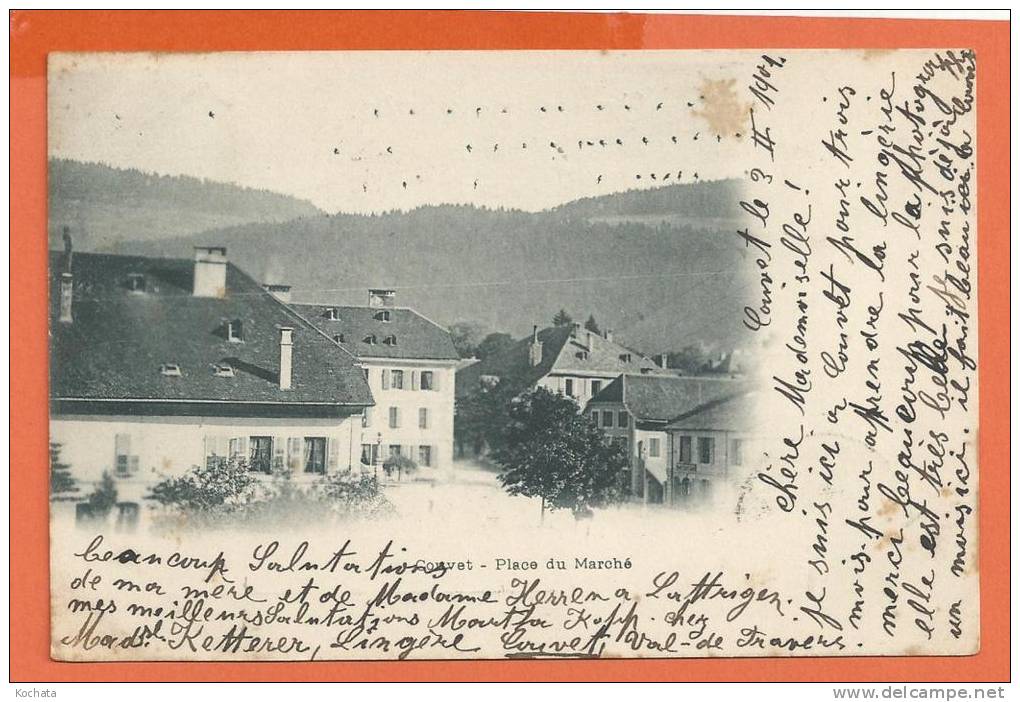 Couvet le 3 II 1901.
chère Mademoiselle!
je suis ici a Couvet pour trois
mois pour aprendre la lingerie
merci beaucoup pour la photogra
elle est très belle je suis déjà
un mois ici. il fait beau ici
Couvet - Place du Marché
beaucoup Salutations
de ma mère et de Madame Herren a Lattrigen.
mes meilleurs Salutations Martha Kopp. chez
Ketterer, Lingère Couvet, Val-de Travers.
Kochata
www.delcampe.net